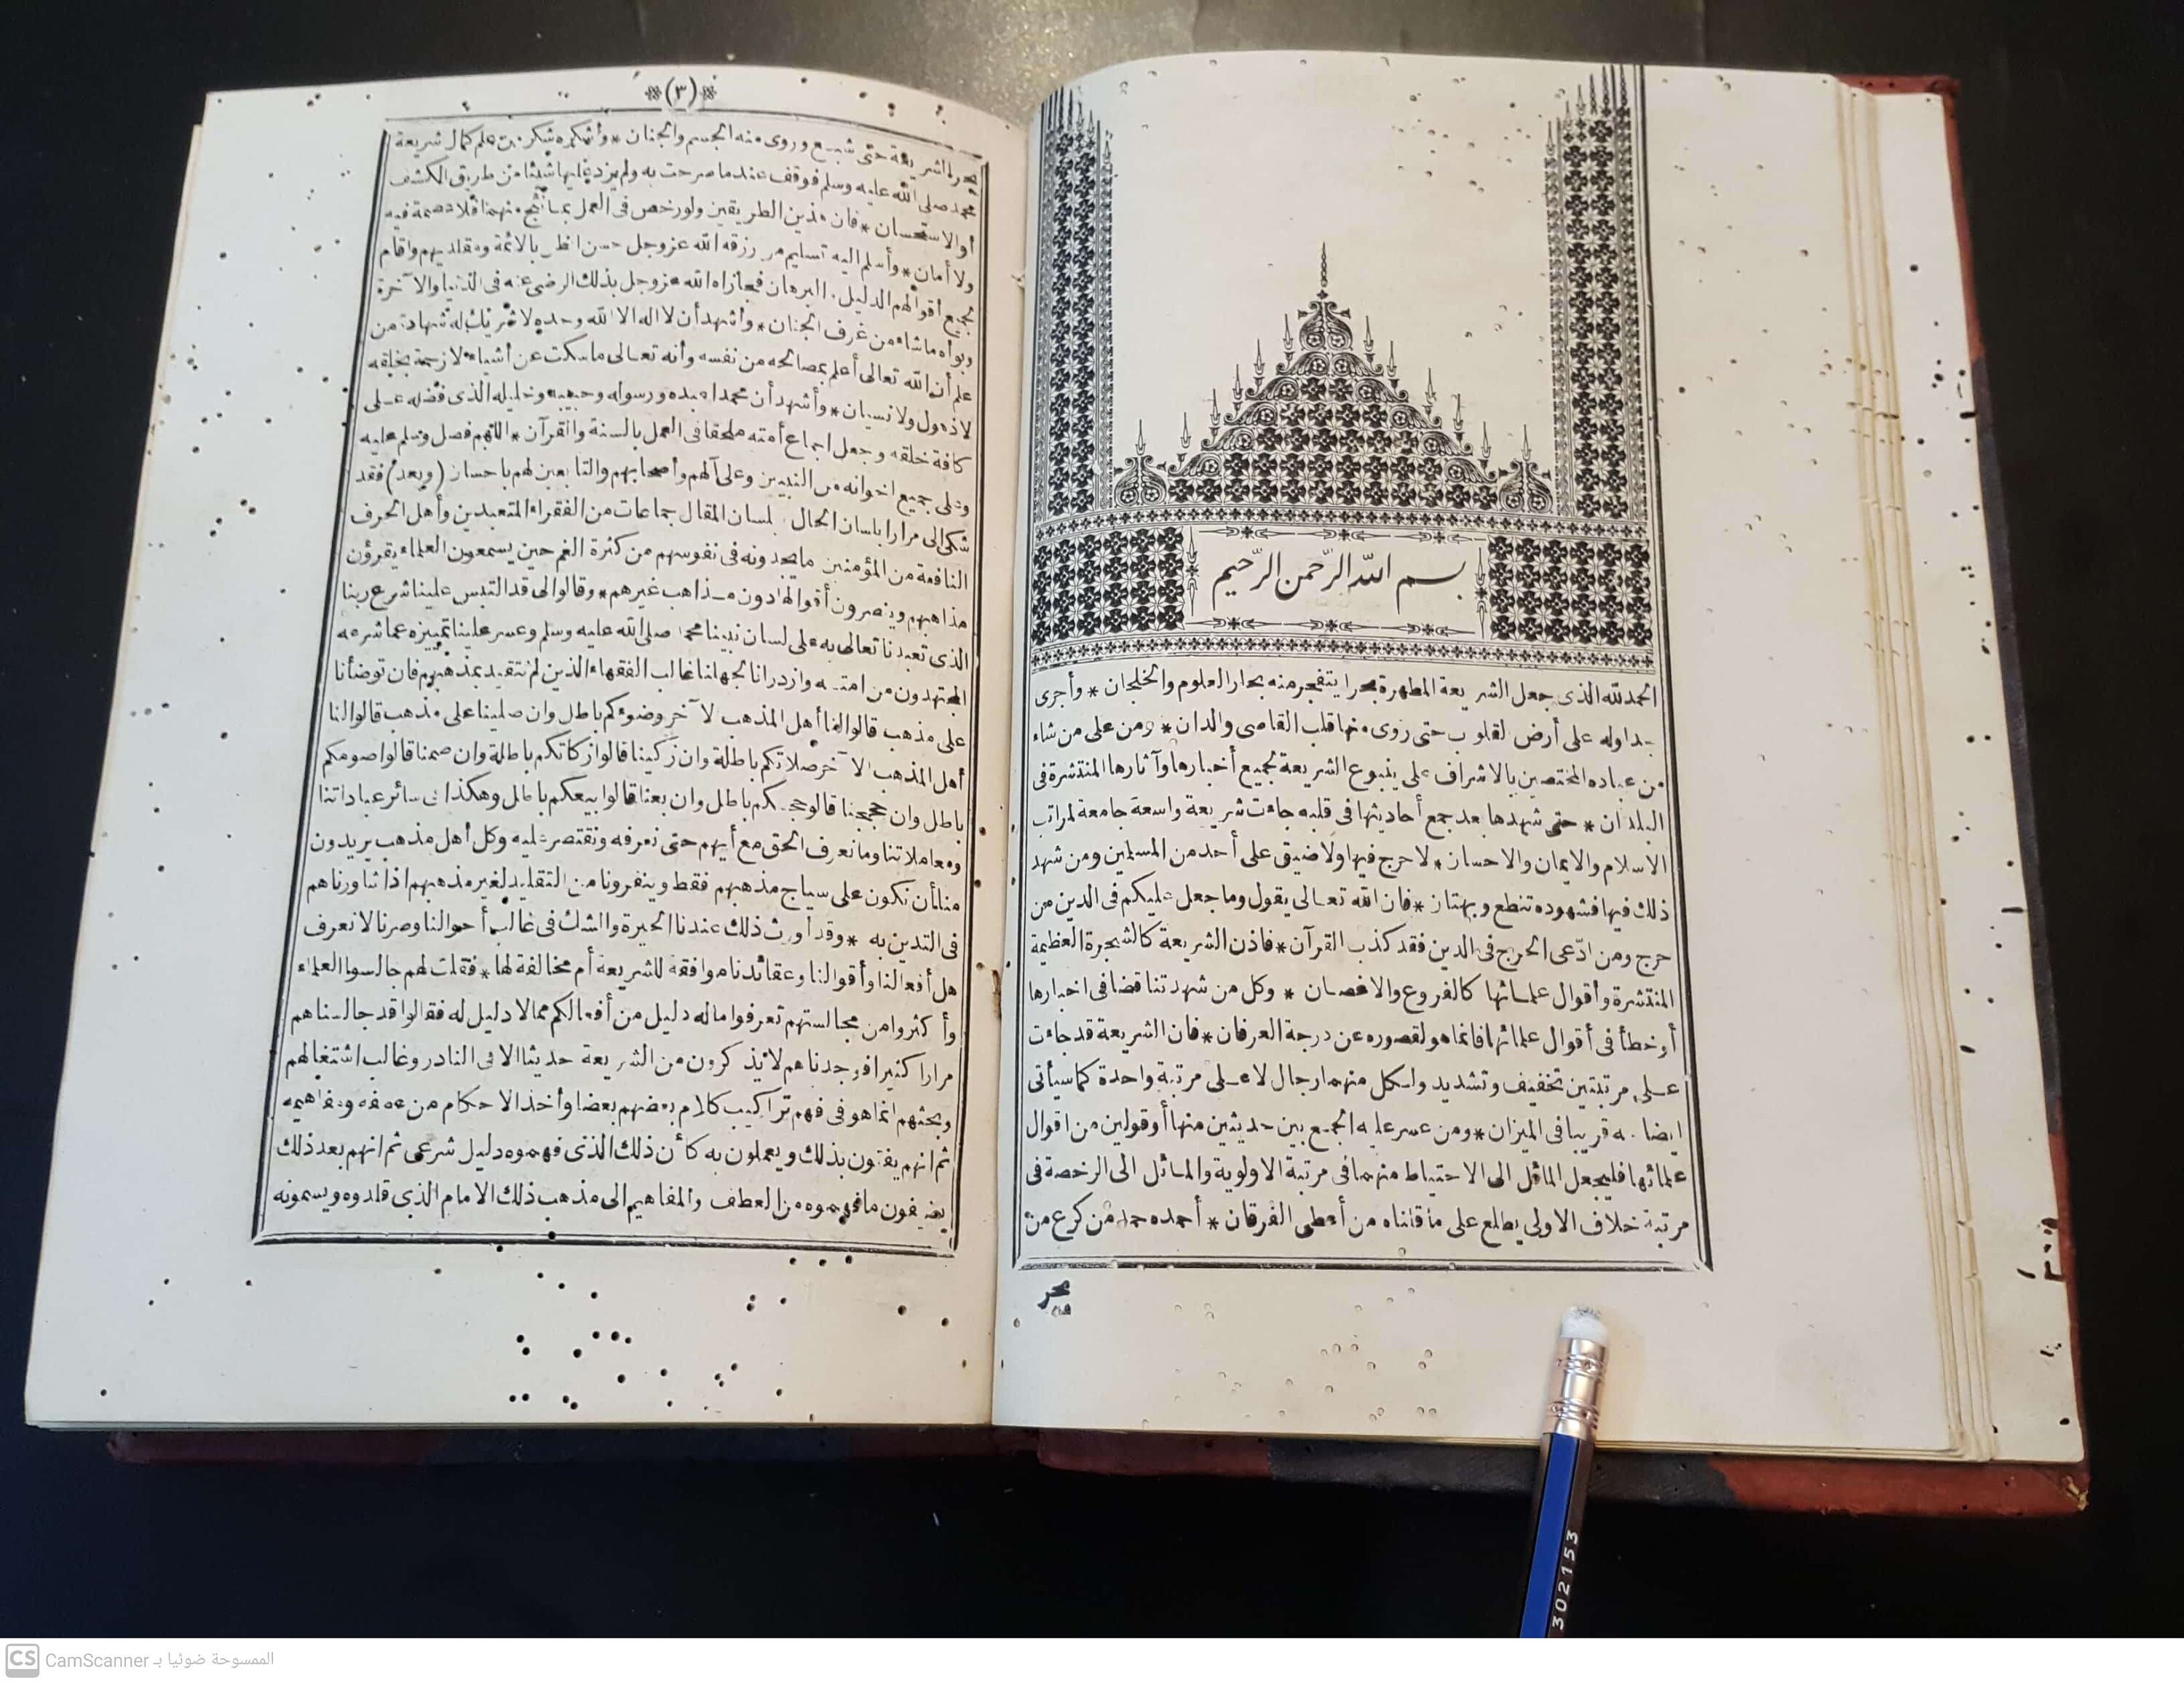 بسم الله الرحمن الرحيم
الحمد لله الذى جعل الشريعة المطهرة بحرا يتفجر منه بحار العلوم والخلجان * وأجرى
جداوله على أرض القلوب حتى روى منها قلب القاصى والدان * ومن على من شاء
من عباده المختصين بالاشراف على ينبوع الشريعة بجميع أخبارها وآثارها المنتشرة فى
البلدان * حتى شهدها بعد جمع أحاديثها فى قلبه جاءت شريعة واسعة جامعة لمراتب
الاسلام والايمان والاحسان * لا حرج فيها ولا ضيق على أحد من المسلمين ومن شهد
ذلك فيها فشهوده تنطع وبهتان * فان الله تعالى يقول وما جعل عليكم فى الدين من
حرج ومن ادّعى الحرج فى الدين فقد كذب القرآن * فاذن الشريعة كالشجرة العظيمة
المنتشرة وأقوال علمائها كالفروع والاغصان * وكل من شهد تناقضا فى اخبارها
أو خطأ فى أقوال علمائها فانما هو لقصوره عن درجة العرفان * فان الشريعة قد جاءت
على مرتبتين تخفيف وتشديد ولكل منهما رجال لا على مرتبة واحدة كما سيأتى
ايضاحه قريبا فى الميزان * ومن عسر عليه الجمع بين حديثين منها أو قولين من اقوال
علمائها فليجعل المائل الى الاحتياط منهما فى مرتبة الاولوية والمائل الى الرخصة فى
مرتبة خلاف الاولى يطلع على ما قلناه من أعطى الفرقان * أحمده حمد من كرع من
بحر
(٣)
بحر الشريعة حتى شبع وروى منه الجسم والجنان * وأشكره شكر من علم كمال شريعة
محمد صلى الله عليه وسلم فوقف عند ما صرحت به ولم يزد عليها شيئا من طريق الكشف
أو الاستحسان * فان هذين الطريقين ولو رخص فى العمل بما أنتج منهما فلا عصمة فيه
ولا أمان * وأسلم اليه تسليم من رزقه الله عز وجل حسن الظن بالائمة ومقلديهم وأقام
لجميع أقوالهم الدليل والبرهان فجازاه الله عز وجل بذلك الرضى عنه فى الدنيا والآخرة
وبوأه ما شاء من غرف الجنان * وأشهد أن لا اله الا الله وحده لا شريك له شهادة من
علم أن الله تعالى أعلم بمصالحه من نفسه وأنه تعالى ما سكت عن أشياء الا رحمة بخلقه
لا ذهول ولا نسيان * وأشهد أن محمدا عبده ورسوله وحبيبه وخليله الذى فضله على
كافة خلقه وجعل اجماع أمته ملحقا فى العمل بالسنة والقرآن * اللهم فصل وسلم عليه
وعلى جميع اخوانه من النبيين وعلى آلهم وأصحابهم والتابعين لهم باحسان (وبعد) فقد
شكى الى مرارا بلسان الحال ولسان المقال جماعات من الفقراء المتعبدين وأهل الحرف
النافعة من المؤمنين ما يجدونه فى نفوسهم من كثرة الغم حين يسمعون العلماء يقررؤن
مذاهبهم وينصرون أقوالها دون مذاهب غيرهم * وقالوا لى قد التبس علينا شرع ربنا
الذى تعبدنا تعالى به على لسان نبينا محمد صلى الله عليه وسلم وعسر علينا تمييزه عما شرعه
المجتهدون من امته وازدرانا لجهلنا غالب الفقهاء الذين لم نتقيد بمذهبهم فان توضأنا
على مذهب قالوا لنا أهل المذهب الآخر وضوءكم باطل وان صلينا على مذهب قالوا لنا
أهل المذهب الآخر صلاتكم باطلة وان زكينا قالوا زكاتكم باطلة وان صمنا قالوا صومكم
باطل وان حججنا قالوا حجكم باطل وان بعنا قالوا بيعكم باطل وهكذا فى سائر عباداتنا
ومعاملاتنا وما نعرف الحق مع أيهم حتى نعرفه ونقتصر عليه وكل أهل مذهب يريدون
منا أن نكون على سياج مذهبهم فقط وينفرونا من التقليد لغير مذهبهم اذا شاورناهم
فى التدين به * وقد أورث ذلك عندنا الحيرة والشك فى غالب أحوالنا وصرنا لا نعرف
هل أفعالنا وأقوالنا وعقائدنا موافقة للشريعة أم مخالفة لها * فقلت لهم جالسوا العلماء
وأكثروا من مجالستهم تعرفوا ما له دليل من أفعالكم مما لا دليل له فقالوا قد جالسناهم
مرارا كثيرا فوجدناهم لا يذكرون من الشريعة حديثا الا فى النادر وغالب اشتغالهم
وبحثهم انما هو فى فهم تراكيب كلام بعضهم بعضا وأخذ الاحكام من عطفه ومفاهيمه
ثم انهم يفتون بذلك ويعملون به كأن ذلك الذى فهموه دليل شرعى ثم انهم بعد ذلك
يضيفون ما فهموه من العطف والمفاهيم الى مذهب ذلك الامام الذى قلدوه ويسمونه
302153
CS CamScanner الممسوحة ضوئيا بـ